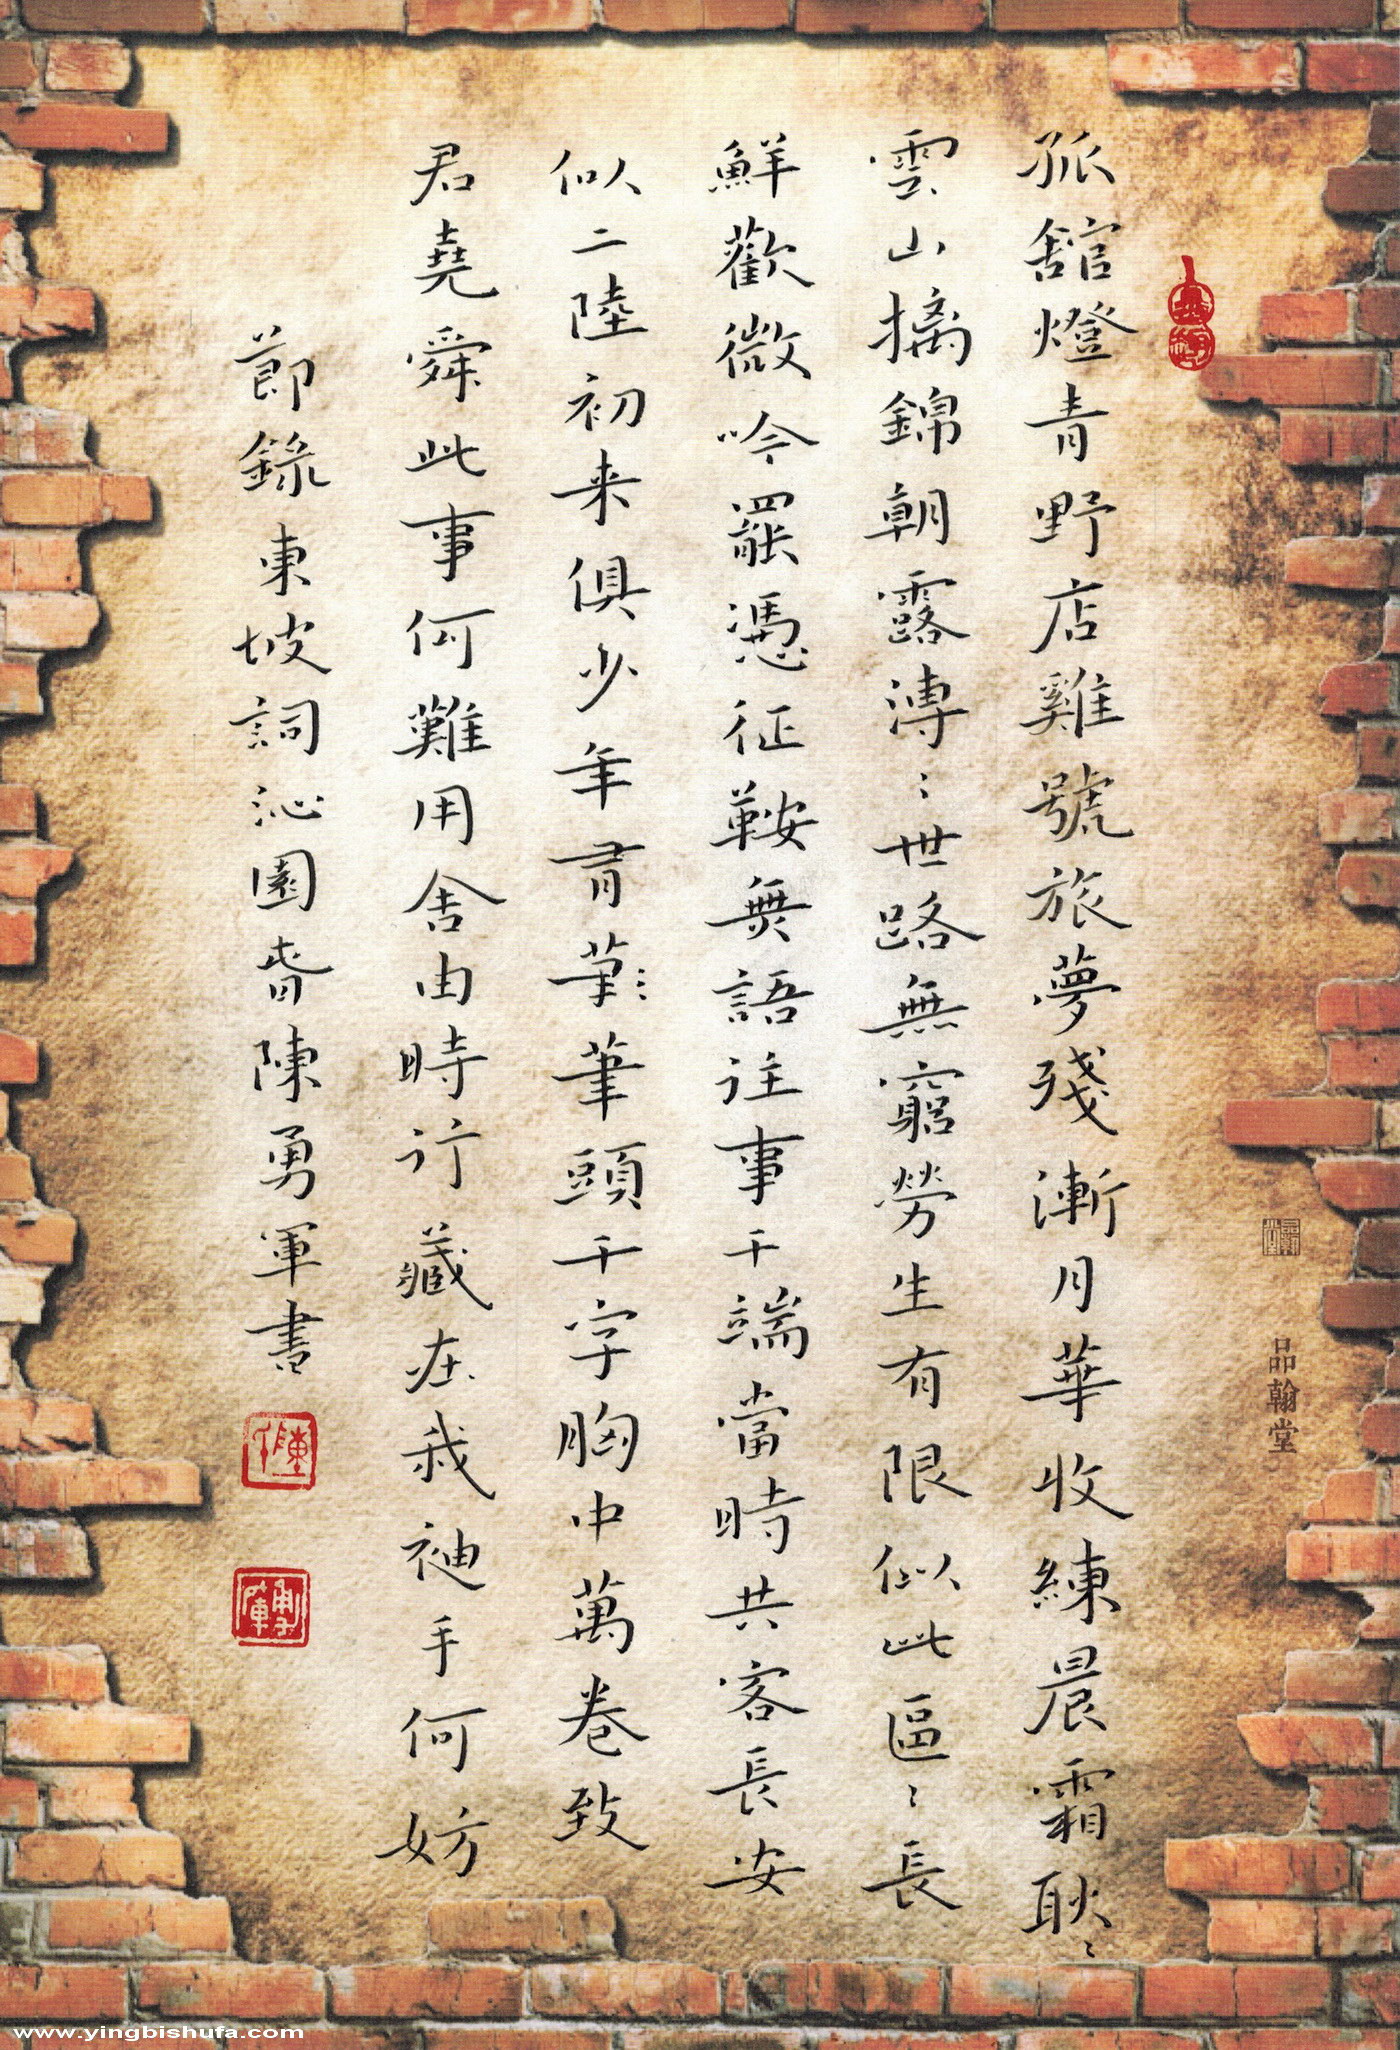 孤舘燈青野店雞號旅夢殘漸月華收練晨霜耿〻
雲山摛錦朝露漙〻世路無窮勞生有限似此區〻長
鮮歡微吟罷憑征鞍無語往事千端當時共客長安
似二陸初来俱少年有筆〻筆頭千字胸中萬卷致
君堯舜此事何難用舍由時行藏在我袖手何妨
節錄東坡詞沁園春陳勇軍書
品翰堂
www.yingbishufa.com